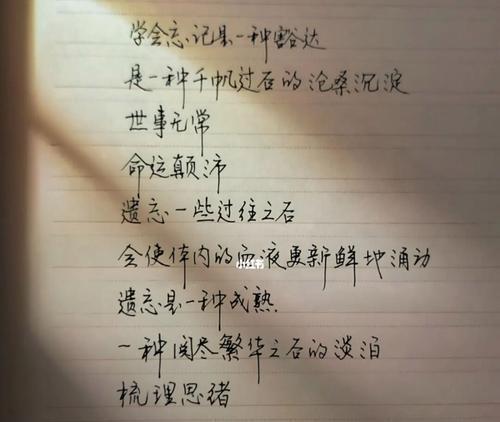 学会忘记是一种豁达
是一种千帆过后的沧桑沉淀
世事无常
命运颠沛
遗忘一些过往之后
会使体内的血液更新鲜地涌动
小红书
遗忘是一种成熟
一种阅尽繁华之后的淡泊
梳理思绪